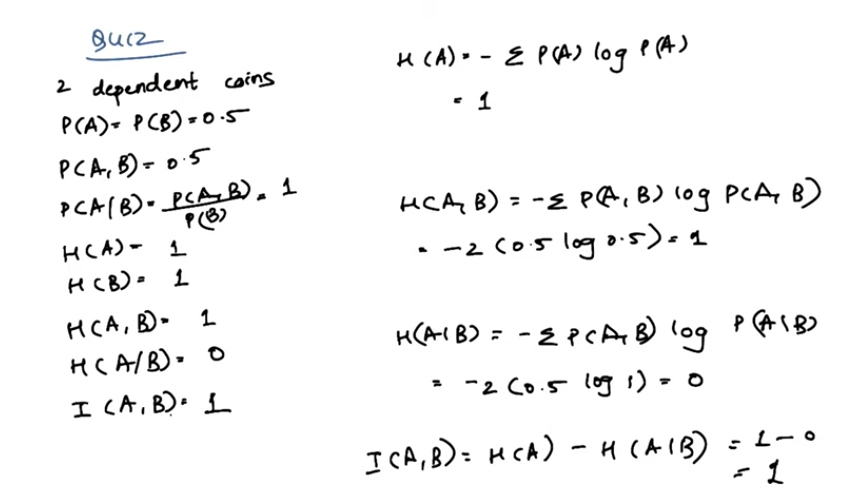 Quiz
2 dependent coins
P(A) = P(B) = 0.5
P(A, B) = 0.5
P(A|B) = P(A, B) / P(B) = 1
H(A) = 1
H(B) = 1
H(A, B) = 1
H(A/B) = 0
I(A, B) = 1
H(A) = - Σ P(A) log P(A)
= 1
H(A, B) = -Σ P(A, B) log P(A, B)
= -2 (0.5 log 0.5) = 1
H(A|B) = -Σ P(A, B) log P(A|B)
= -2 (0.5 log 1) = 0
I(A, B) = H(A) - H(A|B) = 1 - 0
= 1